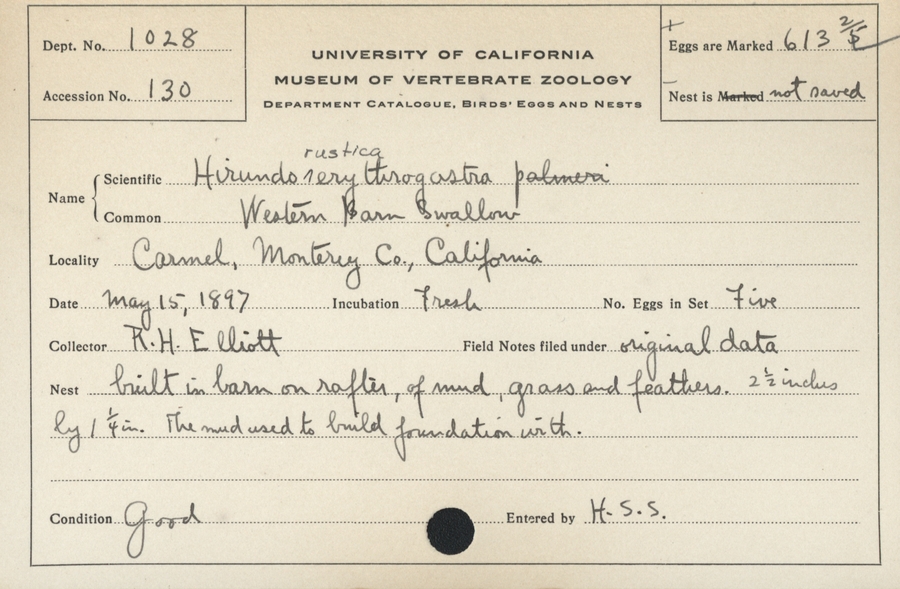 Dept. No. 1028
Accession No. 130
UNIVERSITY OF CALIFORNIA
MUSEUM OF VERTEBRATE ZOOLOGY
DEPARTMENT CATALOGUE, BIRDS' EGGS AND NESTS
Eggs are Marked 613 2/5
Nest is Marked not saved
rustica
Name
Scientific Hirundo erythrogastra palmeri
Common Western Barn Swallow
Locality Carmel, Monterey Co., California
Date May 15, 1897 Incubation Fresh No. Eggs in Set Five
Collector R. H. Elliott Field Notes filed under original data
Nest built in barn on rafter, of mud, grass and feathers. 2 1/2 inches
by 1 1/4 in. The mud used to build foundation with.
Condition Good Entered by H. S. S.